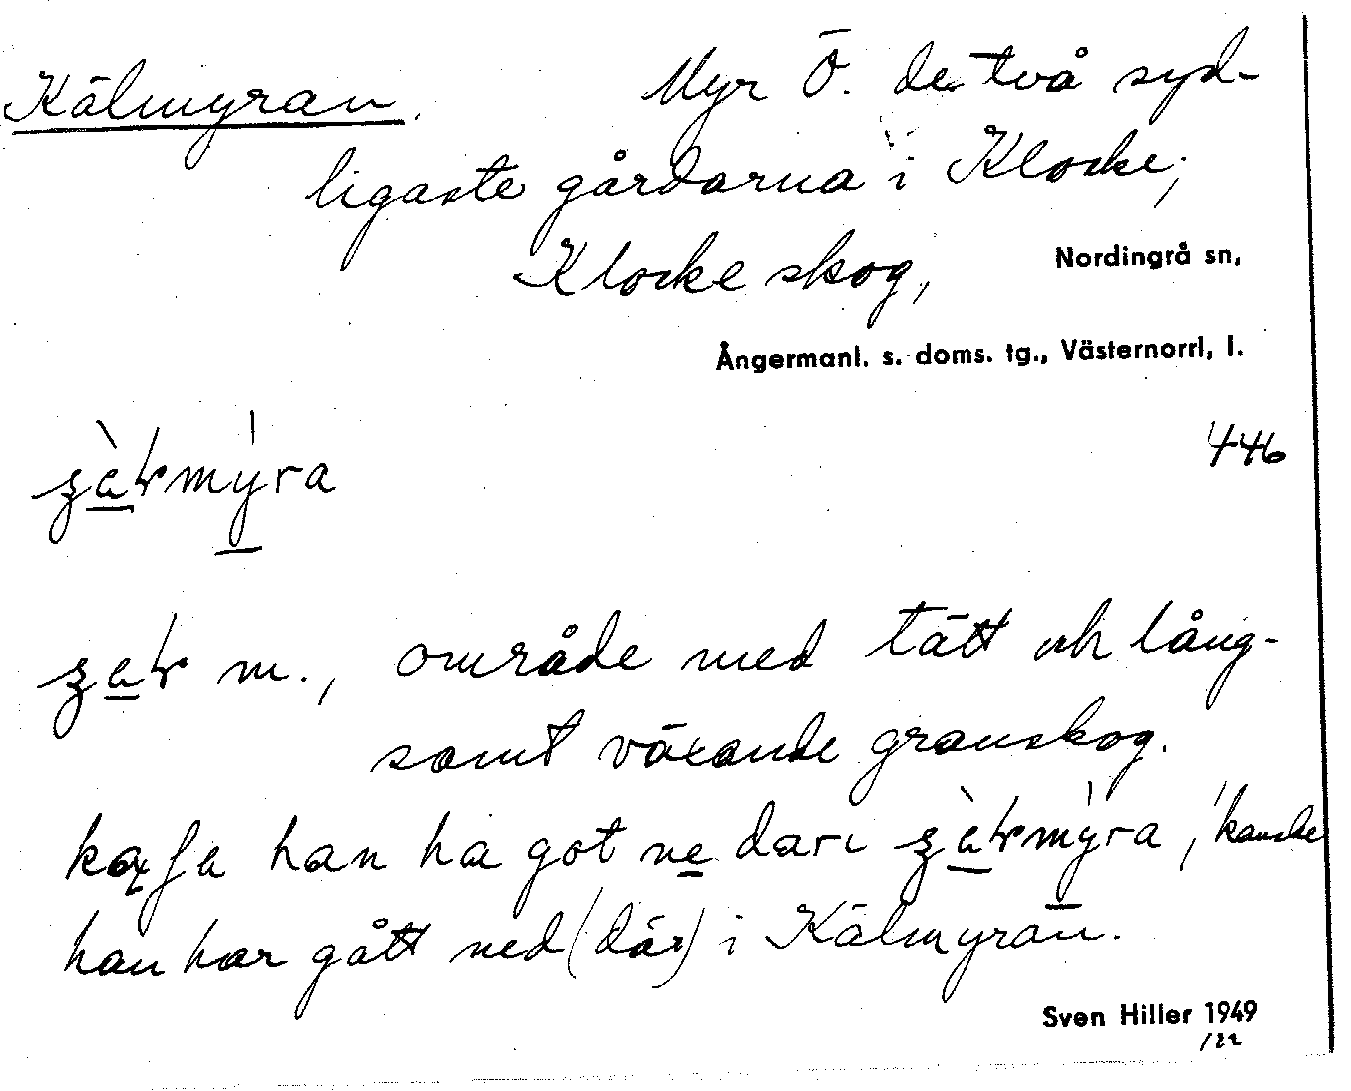 Kälmyran. Myr Ö. de två syd-
ligaste gårdarna i Klocke;
Klocke skog, Nordingrå sn,
Ångermanl. s. doms. tg., Västernorrl, l.
446
m., område med tätt och lång-
samt växande granskog.
han ha got ne dari , 'kanske
han har gått ned (där) i Kälmyran.
Sven Hiller 1949